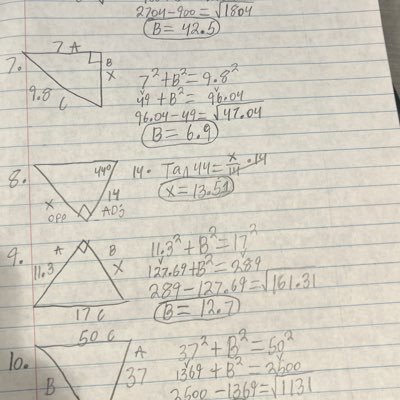 2704-900=√1804
B=42.5
7.
7 A
B
X
9.8
C
7²+B²=9.8²
49+B²=96.04
96.04-49=√47.04
B=6.9
8.
44°
x
OPP
14
ADJ
14. Tan44=x/14 .14
x=13.51
9.
A
B
11.3
X
17 C
11.3²+B²=17²
127.69+B²=289
289-127.69=√161.31
B=12.7
10.
50 C
A
37
B
37²+B²=50²
1369+B²=2500
2500-1369=√1131